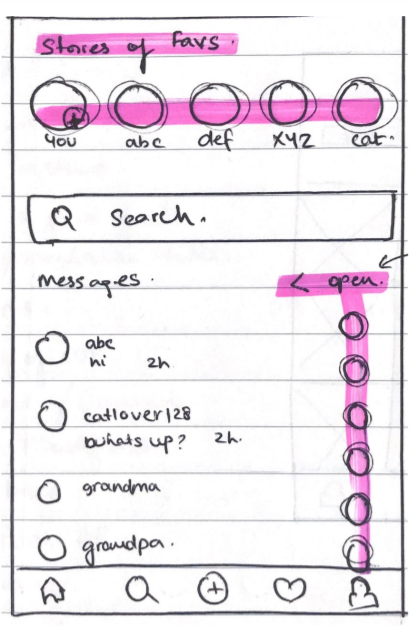 Stories of Favs.
You abc def XYZ cat.
Search.
Messages. < open.
abc
hi 2h
catlover128
whats up? 2h.
grandma
grandpa.